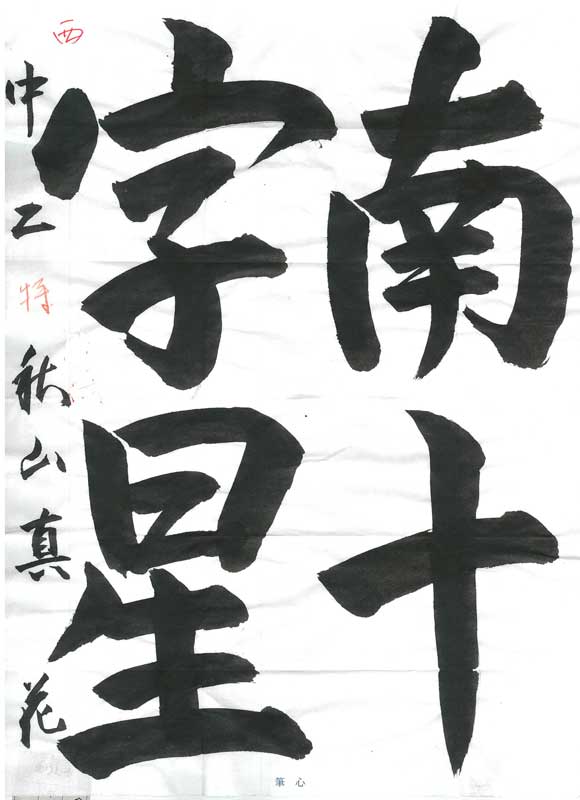 南十
字星
中二 特 秋山真花
西
筆心